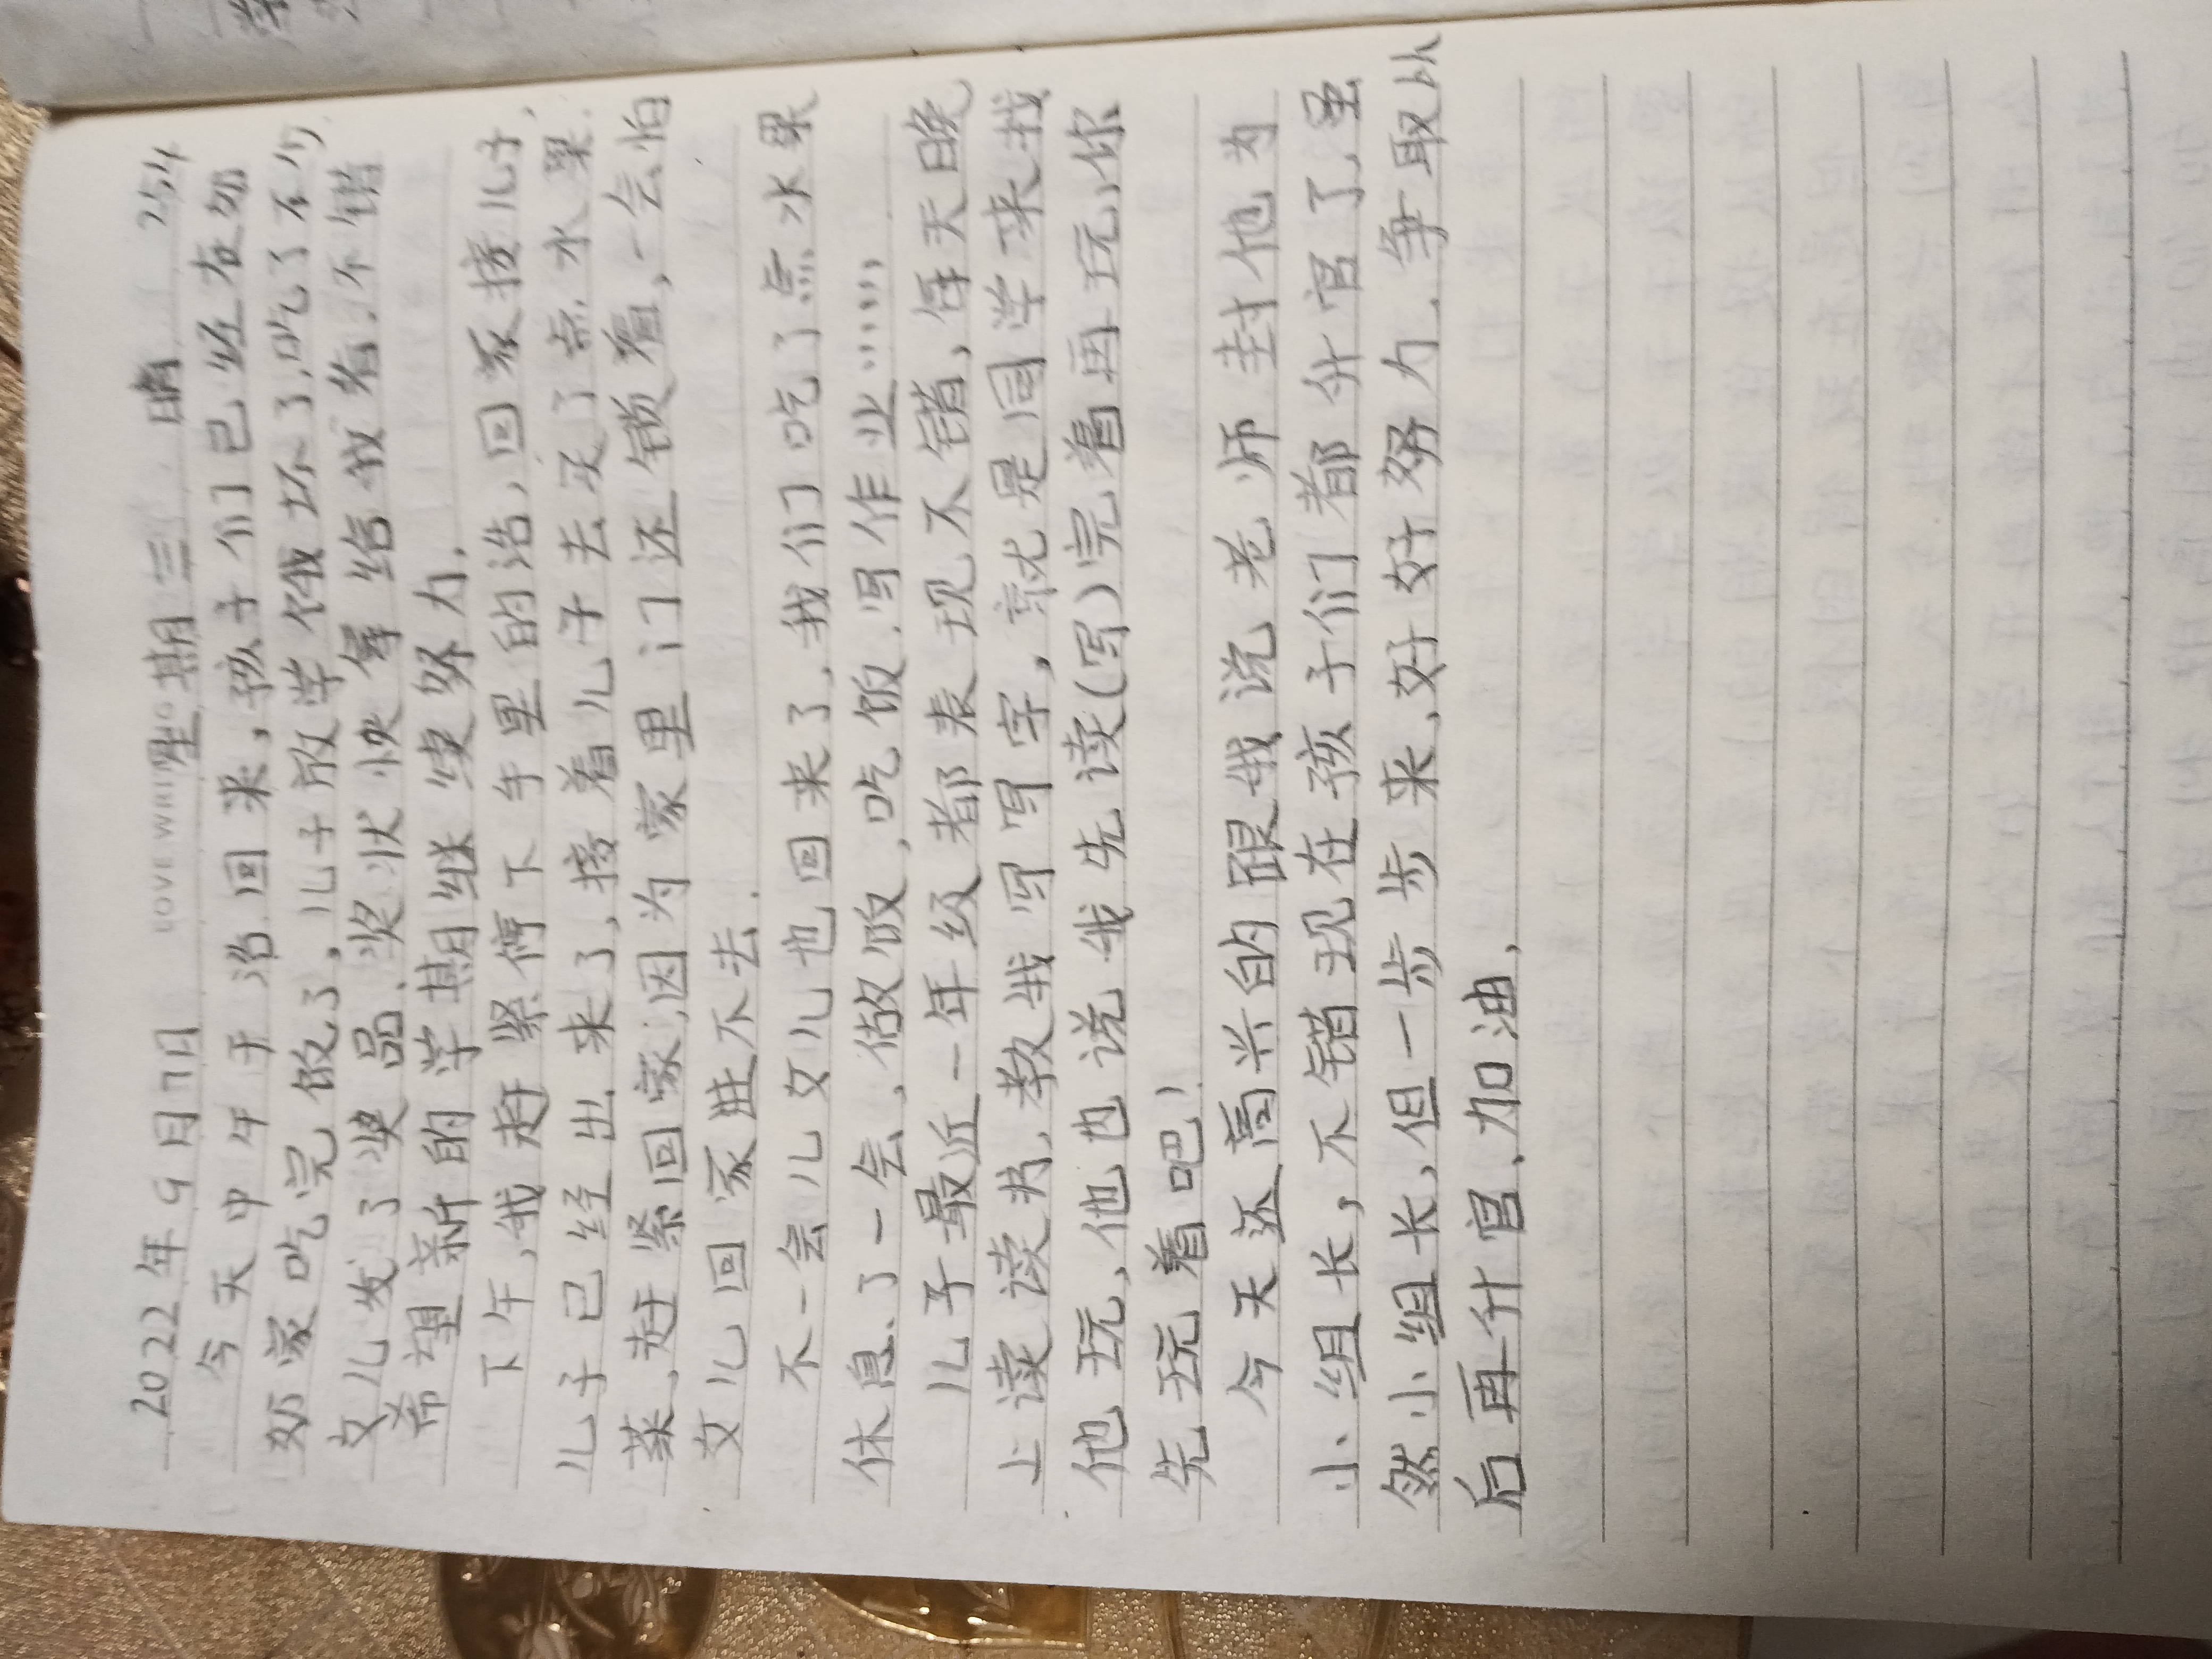 2022年9月7日 LOVE WRI 星期三 晴 254
今天中午干活回来,孩子们已经在奶
奶家吃完饭了,儿子放学饿坏了,吃了不少.
女儿发了奖品、奖状快拿给我看.不错
希望新的学期继续努力.
下午,我赶紧停下手里的活,回家接儿子,
儿子已经出来了,接着儿子去买了点水果.
菜,赶紧回家,因为家里门还锁着,一会怕
女儿回家进不去.
不一会儿女儿也回来了,我们吃了点水果
休息了一会,做饭,吃饭.写作业……,
儿子最近一年级都表现不错,每天晚
上读读书,教我写写字,就是同学来找
他玩,他也说我先读(写)完着再玩,你
先玩着吧!
今天还高兴的跟我说老师封他为
小组长,不错现在孩子们都升官了,虽
然小组长,但一步步来,好好努力.争取以
后再升官,加油,